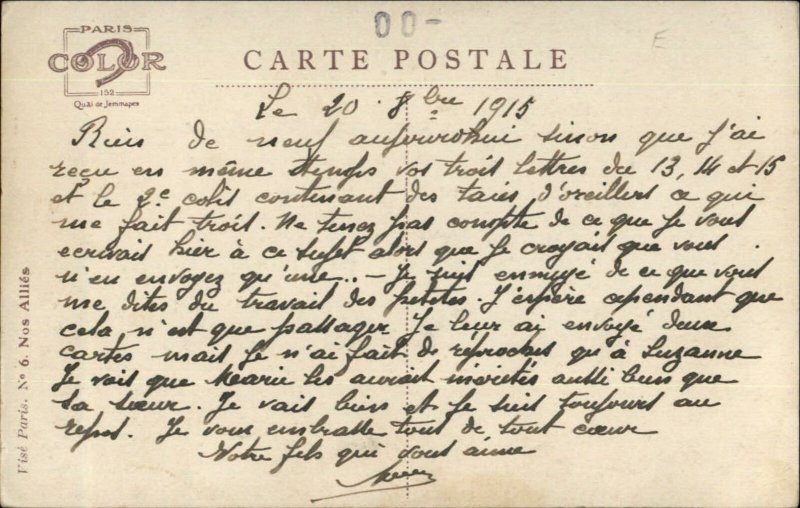 00-
E
PARIS
COLOR
152
Quai de Jemmapes
CARTE POSTALE
Le 20 8bre 1915
Rien de neuf aujourd'hui sinon que j'ai
reçu en même temps vos trois lettres du 13, 14 et 15
et le 2e colis contenant des taies d'oreillers ce qui
me fait trois. Ne tenez pas compte de ce que je vous
ecrivais hier à ce sujet alors que je croyais que vous
n'en envoyez qu'une.. - Je suis ennuyé de ce que vous
me dites du travail des petites. J'espère cependant que
cela n'est que passager. Je leur ai envoyé deux
cartes mais je n'ai fait de reproches qu'à Suzanne
Je vois que Marie les aurait mérités aussi bien que
sa sœur. Je vais bien et je suis toujours au
repos. Je vous embrasse tous de tout cœur
Votre fils qui vous aime
Visé Paris. No 6. Nos Alliés